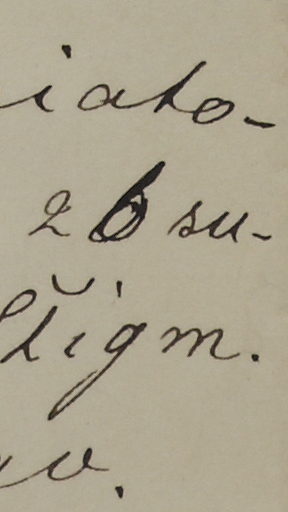 iato-
26 su-
žigm.